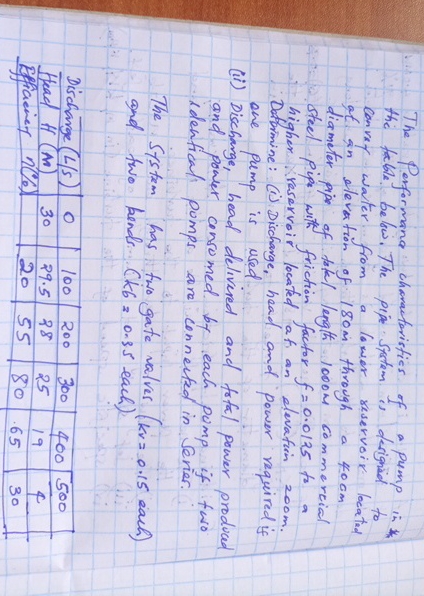 The Performance characteristics of a pump in
the table below. The pipe system is designed to
convey water from a lower reservoir located
at an elevation of 180m through a 400m
diameter pipe of total length 1000m commercial
steel pipe with friction factor f = 0.0125 to a
higher reservoir located at an elevation 200m.
Determine: (i) Discharge, head and power required if
one pump is used
(ii) Discharge, head delivered and total power produced
and power consumed by each pump if two
identical pumps are connected in series.
The System has two gate valves (kv = 0.15 each)
and two bends (kb = 0.35 each)
Discharge (L/s) 0 100 200 300 400 500
Head H (m) 30 29.5 28 25 19 4
Efficiency η(%) 20 55 80 65 30